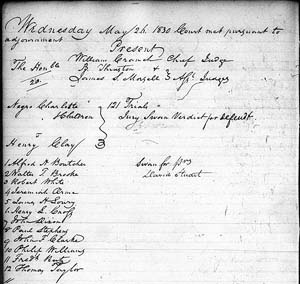 Wednesday May 26. 1830 Court met pursuant to
adjournment
Present
William Cranch Chief Judge
The Honble B. Thruston &
James S. Morsell Asst Judges
Negro Charlotte 121 Trials
& Children Jury Sworn Verdict for Deft.
Henry Clay
1 Alfred H Boutcher Sworn for
2 Walter T Brooke David
3 Robert White
4 Jeremiah Orme
5 James H Lowry
6 Henry L
7 John Dixon
8 Paul Stephens
9 John T Clarke
10 Philip Williams
11 Fredk
12 Thomas Taylor